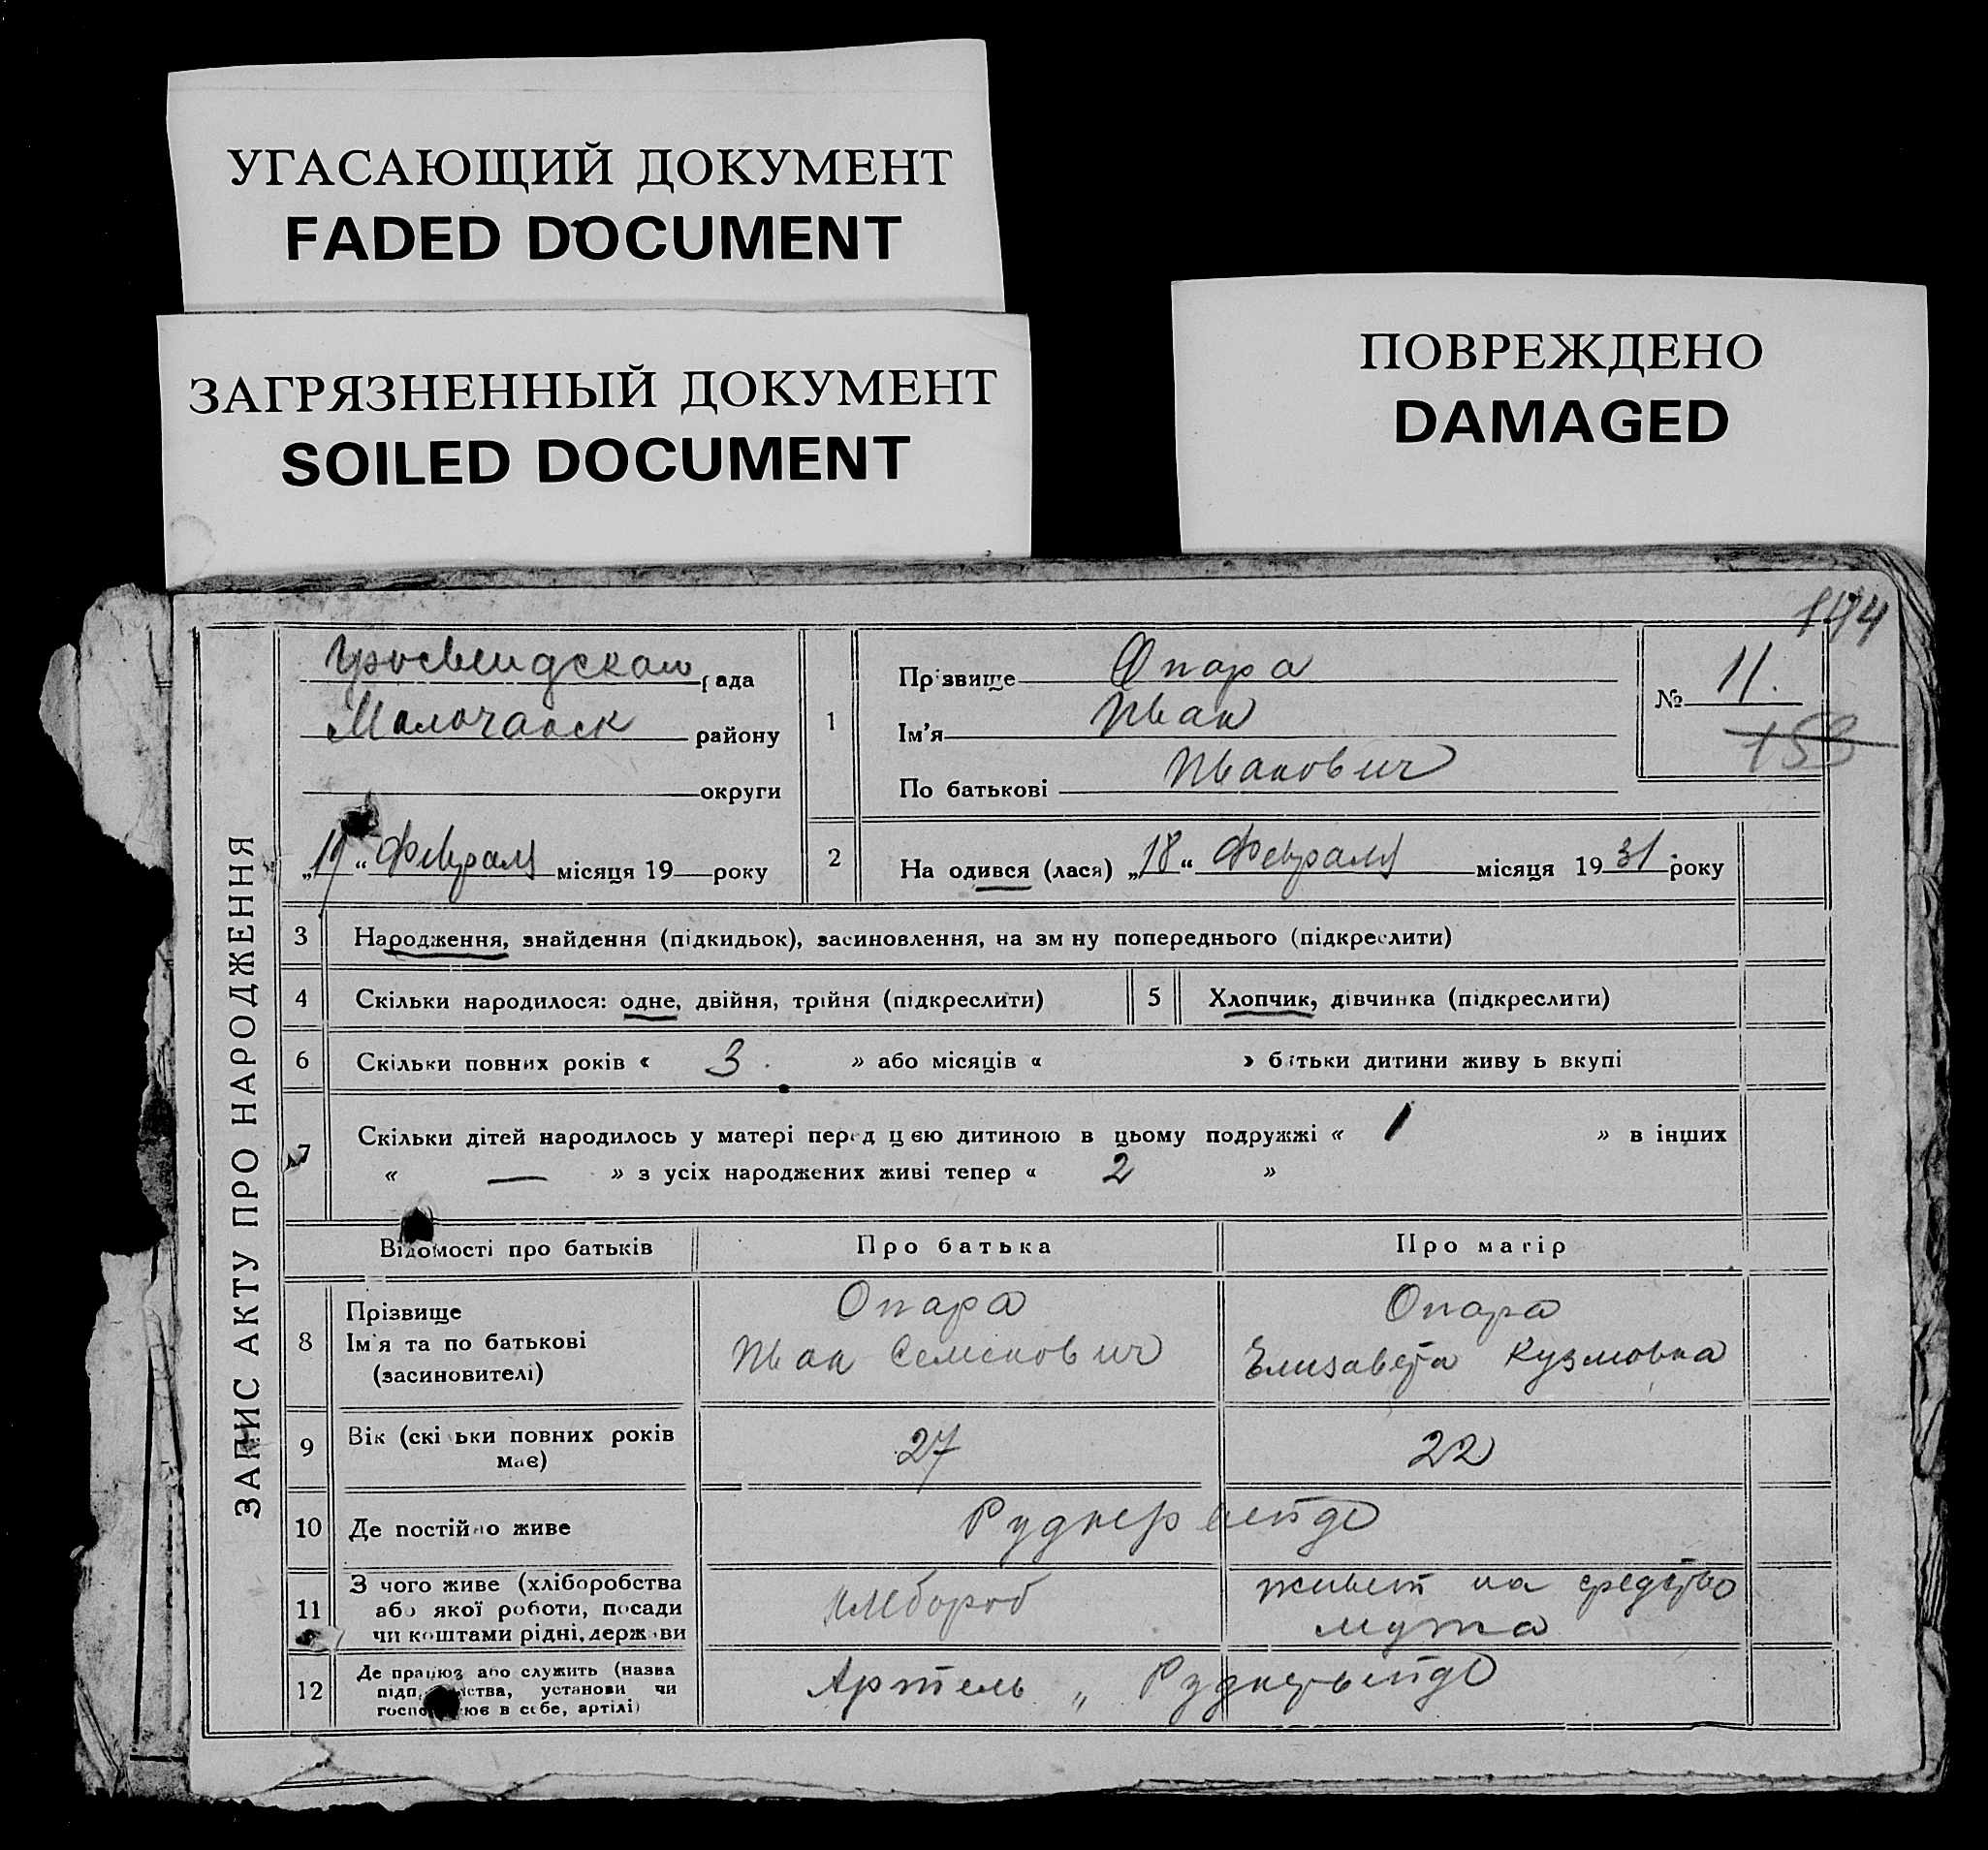 УГАСАЮЩИЙ ДОКУМЕНТ
FADED DOCUMENT
ЗАГРЯЗНЕННЫЙ ДОКУМЕНТ
SOILED DOCUMENT
ПОВРЕЖДЕНО
DAMAGED
ЗАПИС АКТУ ПРО НАРОДЖЕННЯ
рада
Молочанск району
округи
„19“ Февраля місяця 19 року
1
Прізвище Опара
Ім'я Иван
По батькові Иванович
№ 11.
153
2
Народився (лася) „18“ Февраля місяця 1931 року
3 Народження, знайдення (підкидьок), засиновлення, на зміну попереднього (підкреслити)
4 Скільки народилося: одне, двійня, трійня (підкреслити)
5 Хлопчик, дівчинка (підкреслити)
6 Скільки повних років « 3 . » або місяців « » батьки дитини живуть вкупі
7 Скільки дітей народилось у матері перед цією дитиною в цьому подружжі « 1 » в інших
« — » з усіх народжених живі тепер « 2 »
Відомості про батьків Про батька Про матір
8
Прізвище Опара Опара
Ім'я та по батькові Иван Семенович Елизавета Кузмовна
(засиновителі)
9 Вік (скільки повних років має) 27 22
10 Де постійно живе Руднервейде
11
З чого живе (хліборобства
або якої роботи, посади
чи коштами рідні, держави
хлебороб
живет на средство
мужа
12
Де працює або служить (назва
підприємства, установи чи
господарює в себе, артілі)
Артель „ Руднервейде